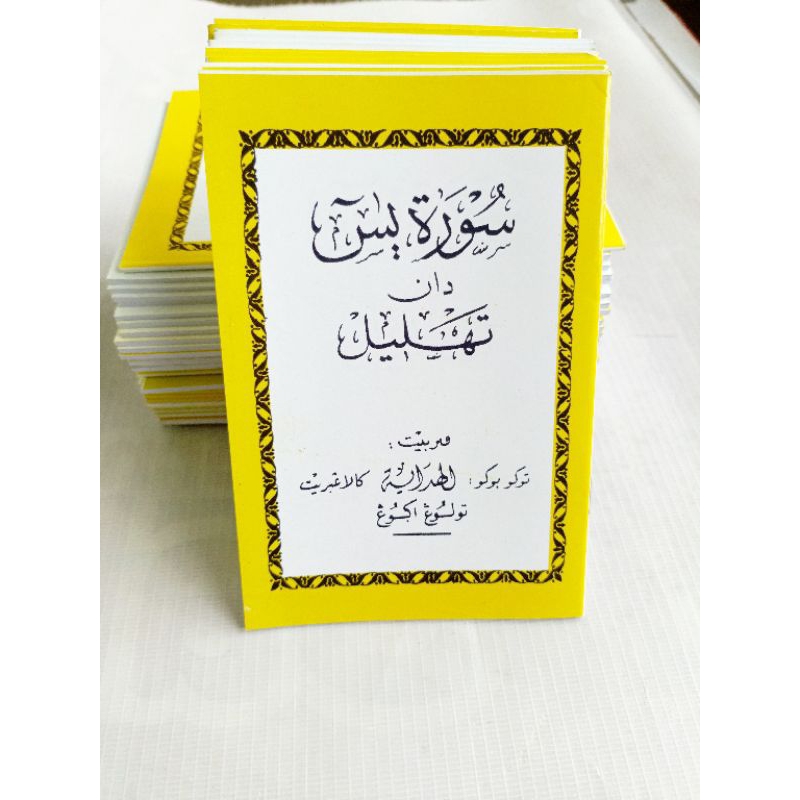 سُوْرَة يسٓ
دان
تهليل
فنربيت :
توكو بوكو : الهداية كالاڠبريت
تولوُڠ اكوُڠ